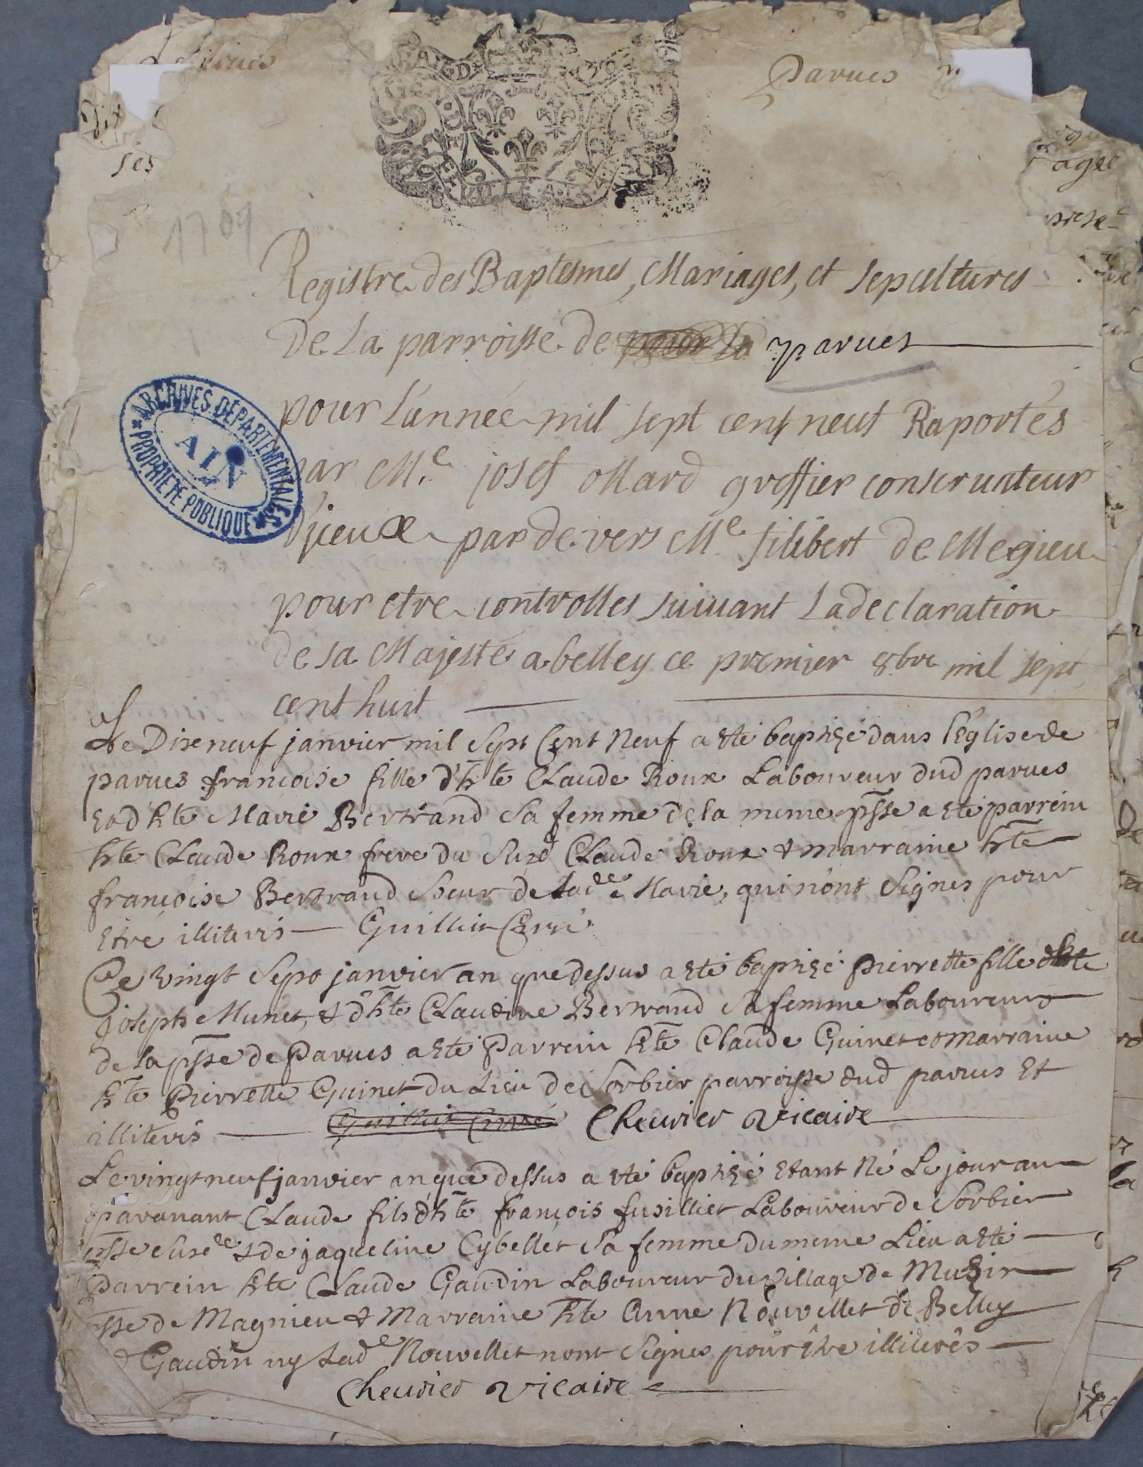 Parues
ses
1709
Registre des Baptesmes, Mariages, et sepultures
De La parroisse de parues
pour L'année mil sept cent neuf Raportés
par Me. josef Mard greffier conseruateur
par de vers Me filibert de Megieu
pour etre controlles suiuant La declaration
de sa Majesté a belley ce premier 8bre mil sept
cent huit
ARCHIVES DÉPARTEMENTALES
AIN
PROPRIÉTÉ PUBLIQUE
Le Dixneuf janvier mil Sept Cent Neuf a eté baptizé dans l'Eglise de
parues francoise fille d'hte Claude Roux Laboureur dud parues
et d'hte Marie Bertrand Sa femme de la meme psse a eté parrein
hte Claude Roux frere du Susd Claude Roux & marraine hte
francoise Bertrand Soeur de ladte Marie, qui n'ont Signes pour
Etre illiteris Guillin Curé
Ce vingt Sept janvier an que dessus a eté baptizé pierrette fille d'hte
joseph Munet, & d'hte Claudine Bertrand Sa femme Laboureurs
de la psse de Parues a eté Parrein hte Claude Guinet et marraine
hte Pierrette Guinet du Lieu de Sorbier parroisse dud parues Et
illiteris Guillin Curé Cheurier Vicaire
Le vingt neuf janvier an que dessus a eté baptizé etant Né Le jour au
paravant Claude fils d'hte francois fusillier Laboureur de Sorbier
psse Susde & de jaqueline Cybellet Sa femme du meme Lieu a eté
parrein hte Claude Gaudin Laboureur du village de Muzin
psse de Magnieu & Marraine hte Anne Nouvellet de Belley
Gaudin ny Lade Nouvellet n'ont Signes pour être illiterês
Cheurier Vicaire